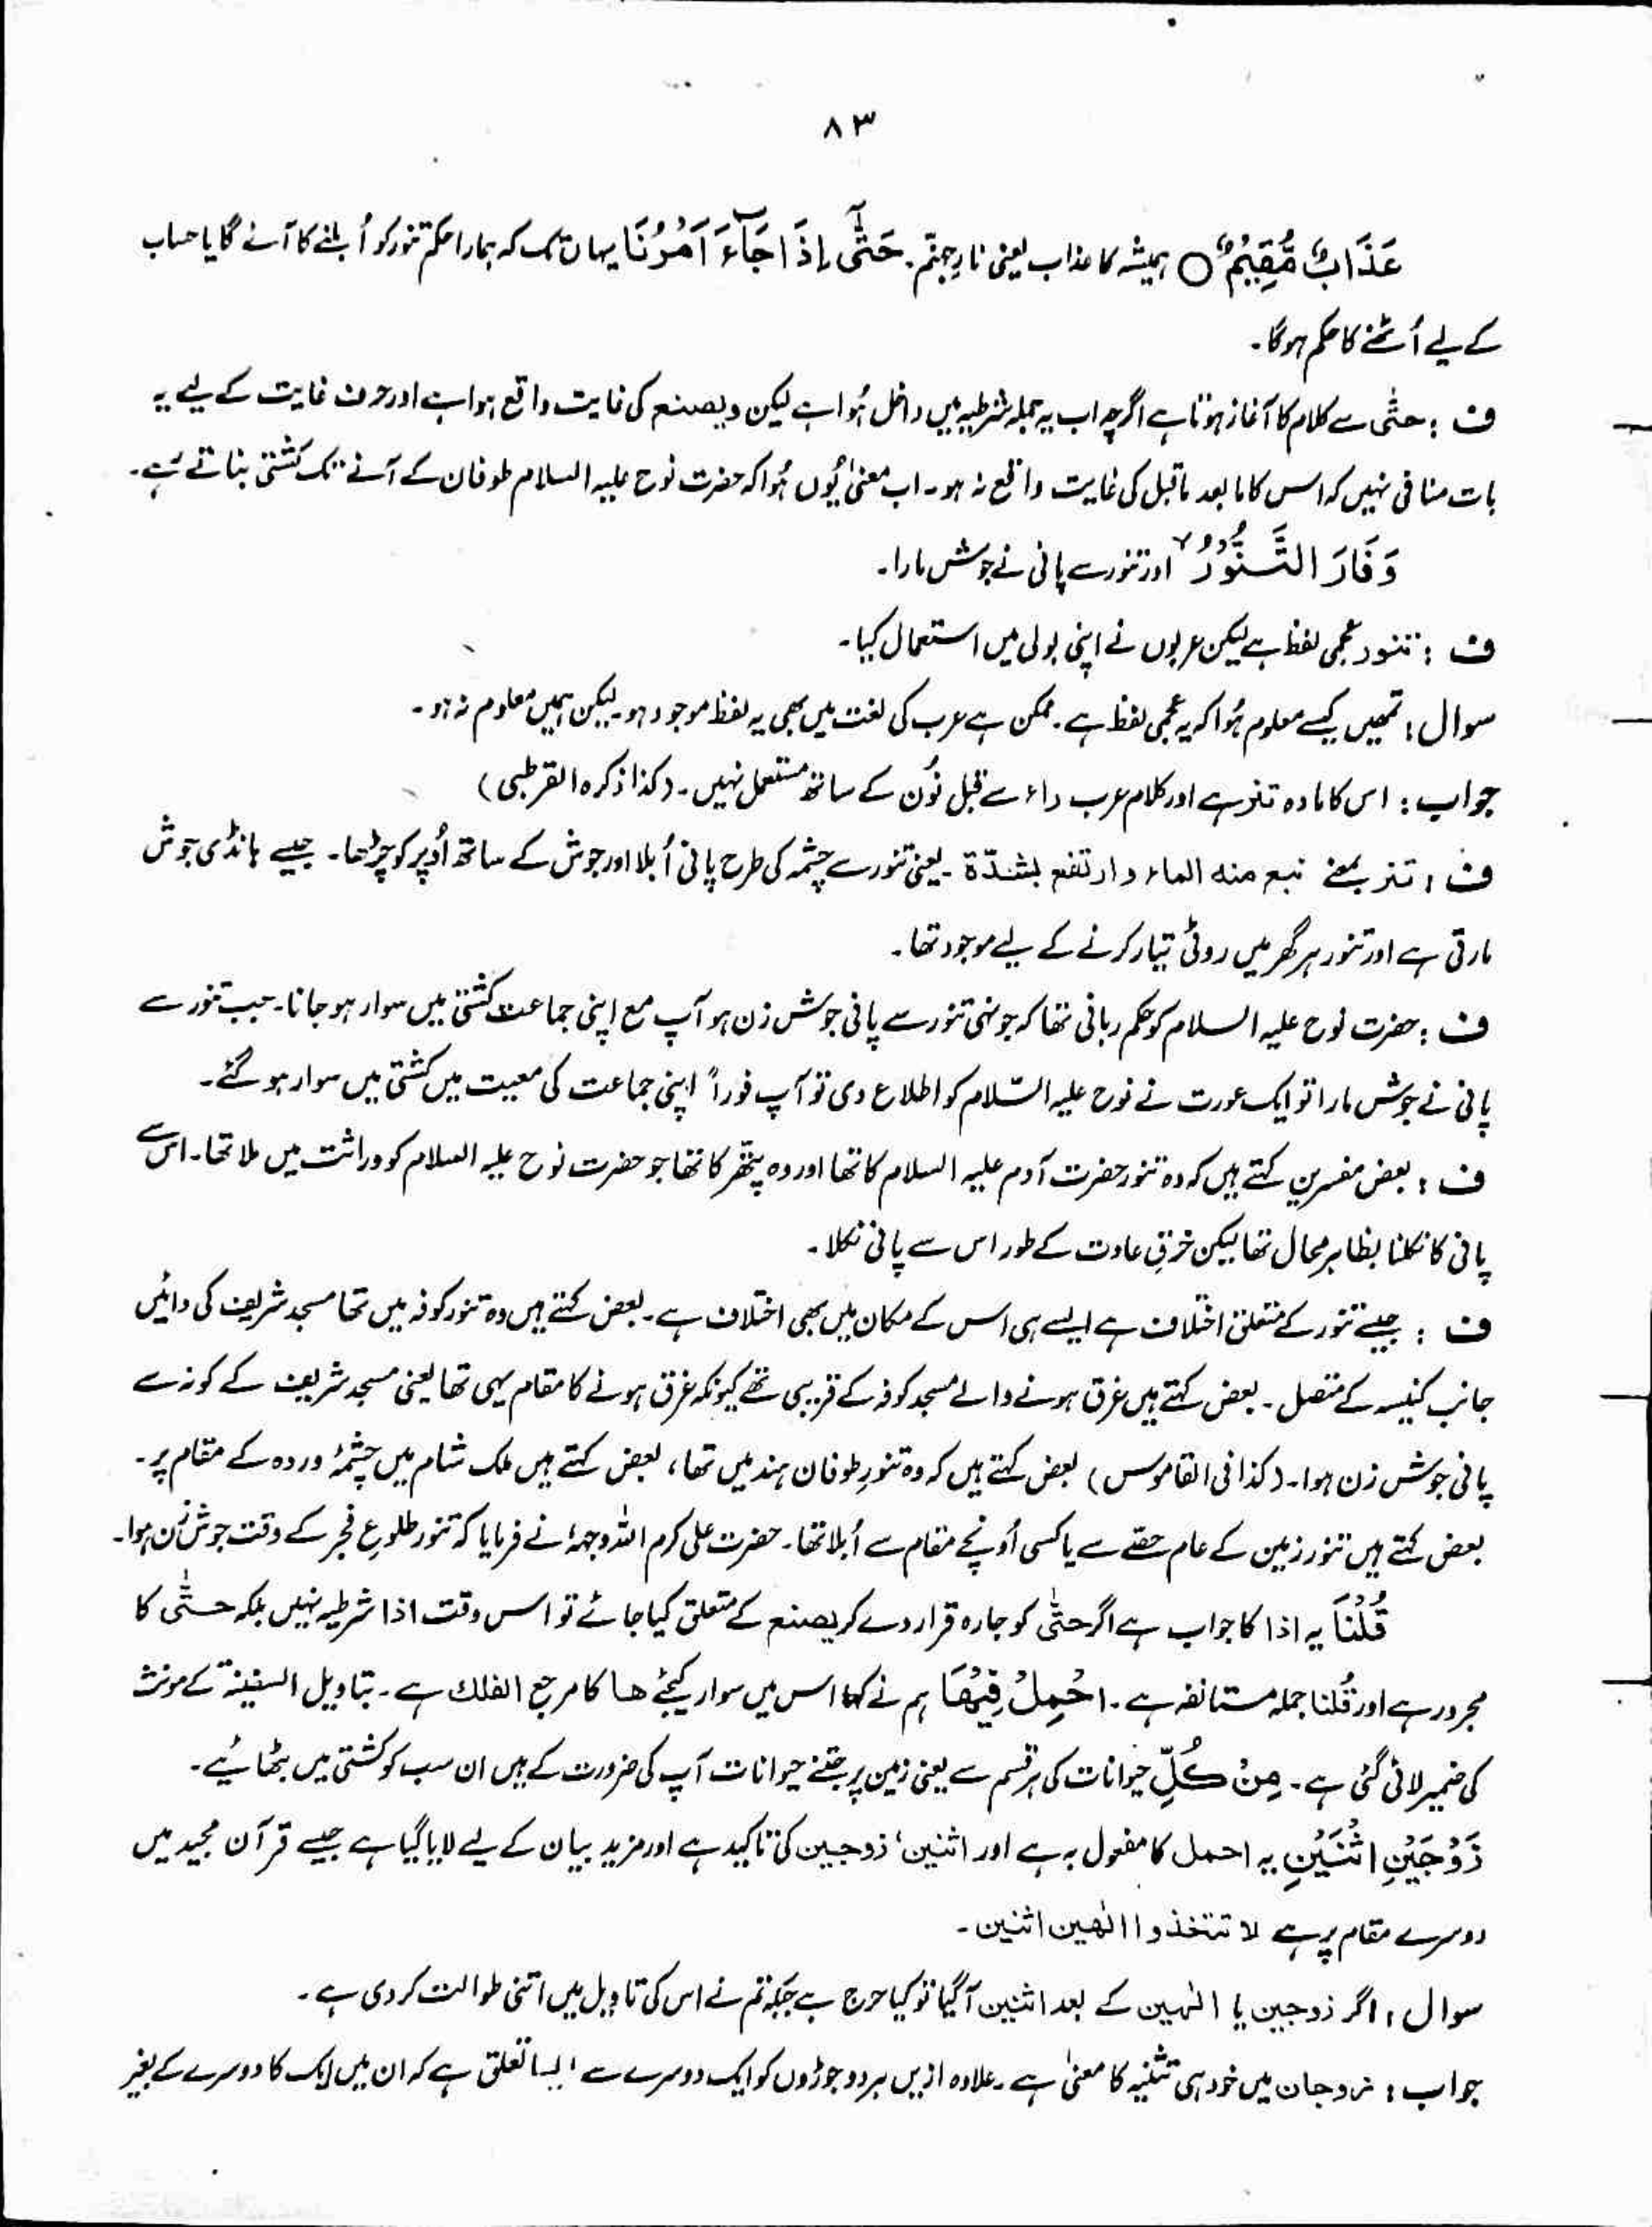 ۸۳
عَذَابٌ مُّقِيْمٌ ○ ہمیشہ کا عذاب یعنی نارِ جہنّم۔ حَتّٰٓى اِذَا جَآءَ اَمْرُنَا یہاں تک کہ ہمارا حکم تنور کو اُبلنے کا آئے گا یا حساب
کے لیے اُٹھنے کا حکم ہوگا۔
ف : حتّٰی سے کلام کا آغاز ہوتا ہے اگرچہ اب یہ جملہ شرطیہ میں داخل ہُوا ہے لیکن ویصنع کی غایت واقع ہوا ہے اور حرف غایت کے لیے یہ
بات منافی نہیں کہ اس کا مابعد ماقبل کی غایت واقع نہ ہو۔ اب معنیٰ یُوں ہُوا کہ حضرت نوح علیہ السلام طوفان کے آنے تک کشتی بناتے رہے۔
وَفَارَ التَّنُّوْرُ اور تنور سے پانی نے جوش مارا۔
ف : تنور عجمی لفظ ہے لیکن عربوں نے اپنی بولی میں استعمال کیا۔
سوال : تمھیں کیسے معلوم ہُوا کہ یہ عجمی لفظ ہے۔ ممکن ہے عرب کی لغت میں بھی یہ لفظ موجود ہو۔ لیکن ہمیں معلوم نہ ہو۔
جواب : اس کا مادہ تنر ہے اور کلام عرب راء سے قبل نُون کے ساتھ مستعمل نہیں۔ (کذا ذکرہ القرطبی)
ف : تنر بمعنے نبع منه الماء وارتفع بشدّة۔ یعنی تنور سے چشمہ کی طرح پانی اُبلا اور جوش کے ساتھ اُوپر کو چڑھا۔ جیسے ہانڈی جوش
مارتی ہے اور تنور ہر گھر میں روٹی تیار کرنے کے لیے موجود تھا۔
ف : حضرت نوح علیہ السلام کو حکم ربانی تھا کہ جونہی تنور سے پانی جوش زن ہو آپ مع اپنی جماعت کشتی میں سوار ہو جانا۔ جب تنور سے
پانی نے جوش مارا تو ایک عورت نے نوح علیہ السّلام کو اطلاع دی تو آپ فوراً اپنی جماعت کی معیت میں کشتی میں سوار ہو گئے۔
ف : بعض مفسرین کہتے ہیں کہ وہ تنور حضرت آدم علیہ السلام کا تھا اور وہ پتھر کا تھا جو حضرت نوح علیہ السلام کو وراثت میں ملا تھا۔ اس سے
پانی کا نکلنا بظاہر محال تھا لیکن خرقِ عادت کے طور اس سے پانی نکلا۔
ف : جیسے تنور کے متعلق اختلاف ہے ایسے ہی اس کے مکان میں بھی اختلاف ہے۔ بعض کہتے ہیں وہ تنور کوفہ میں تھا مسجد شریف کی دائیں
جانب کنیسہ کے متصل۔ بعض کہتے ہیں غرق ہونے والے مسجد کوفہ کے قریبی تھے کیونکہ غرق ہونے کا مقام یہی تھا یعنی مسجد شریف کے کونہ سے
پانی جوش زن ہوا۔ (کذا فی القاموس) بعض کہتے ہیں کہ وہ تنورِ طوفان ہند میں تھا، بعض کہتے ہیں ملک شام میں چشمۂ وردہ کے مقام پر۔
بعض کہتے ہیں تنور زمین کے عام حصّے سے یا کسی اُونچے مقام سے اُبلا تھا۔ حضرت علی کرم اللہ وجہہٗ نے فرمایا کہ تنور طلوعِ فجر کے وقت جوش زن ہوا۔
قُلْنَا یہ اذا کا جواب ہے اگر حتّٰی کو جارہ قرار دے کر یصنع کے متعلق کیا جائے تو اس وقت اذا شرطیہ نہیں بلکہ حتّٰی کا
مجرور ہے اور قُلنا جملہ مستانفہ ہے۔ احْمِلْ فِيْهَا ہم نے کہا اس میں سوار کیجئے ھا کا مرجع الفلک ہے۔ بتاویل السفینۃ کے مونث
کی ضمیر لائی گئی ہے۔ مِنْ كُلٍّ حیوانات کی ہر قسم سے یعنی زمین پر جتنے حیوانات آپ کی ضرورت کے ہیں ان سب کو کشتی میں بٹھائیے۔
زَوْجَيْنِ اثْنَيْنِ یہ احمل کا مفعول بہ ہے اور اثنین، زوجین کی تاکید ہے اور مزید بیان کے لیے لایا گیا ہے جیسے قرآن مجید میں
دوسرے مقام پر ہے لا تتخذوا الٰھین اثنین۔
سوال : اگر زوجین یا الٰھین کے بعد اثنین آگیا تو کیا حرج ہے جبکہ تم نے اس کی تاویل میں اتنی طوالت کر دی ہے۔
جواب : زوجان میں خود ہی تثنیہ کا معنیٰ ہے۔ علاوہ ازیں ہر دو جوڑوں کو ایک دوسرے سے ایسا تعلق ہے کہ ان میں ایک کا دوسرے کے بغیر